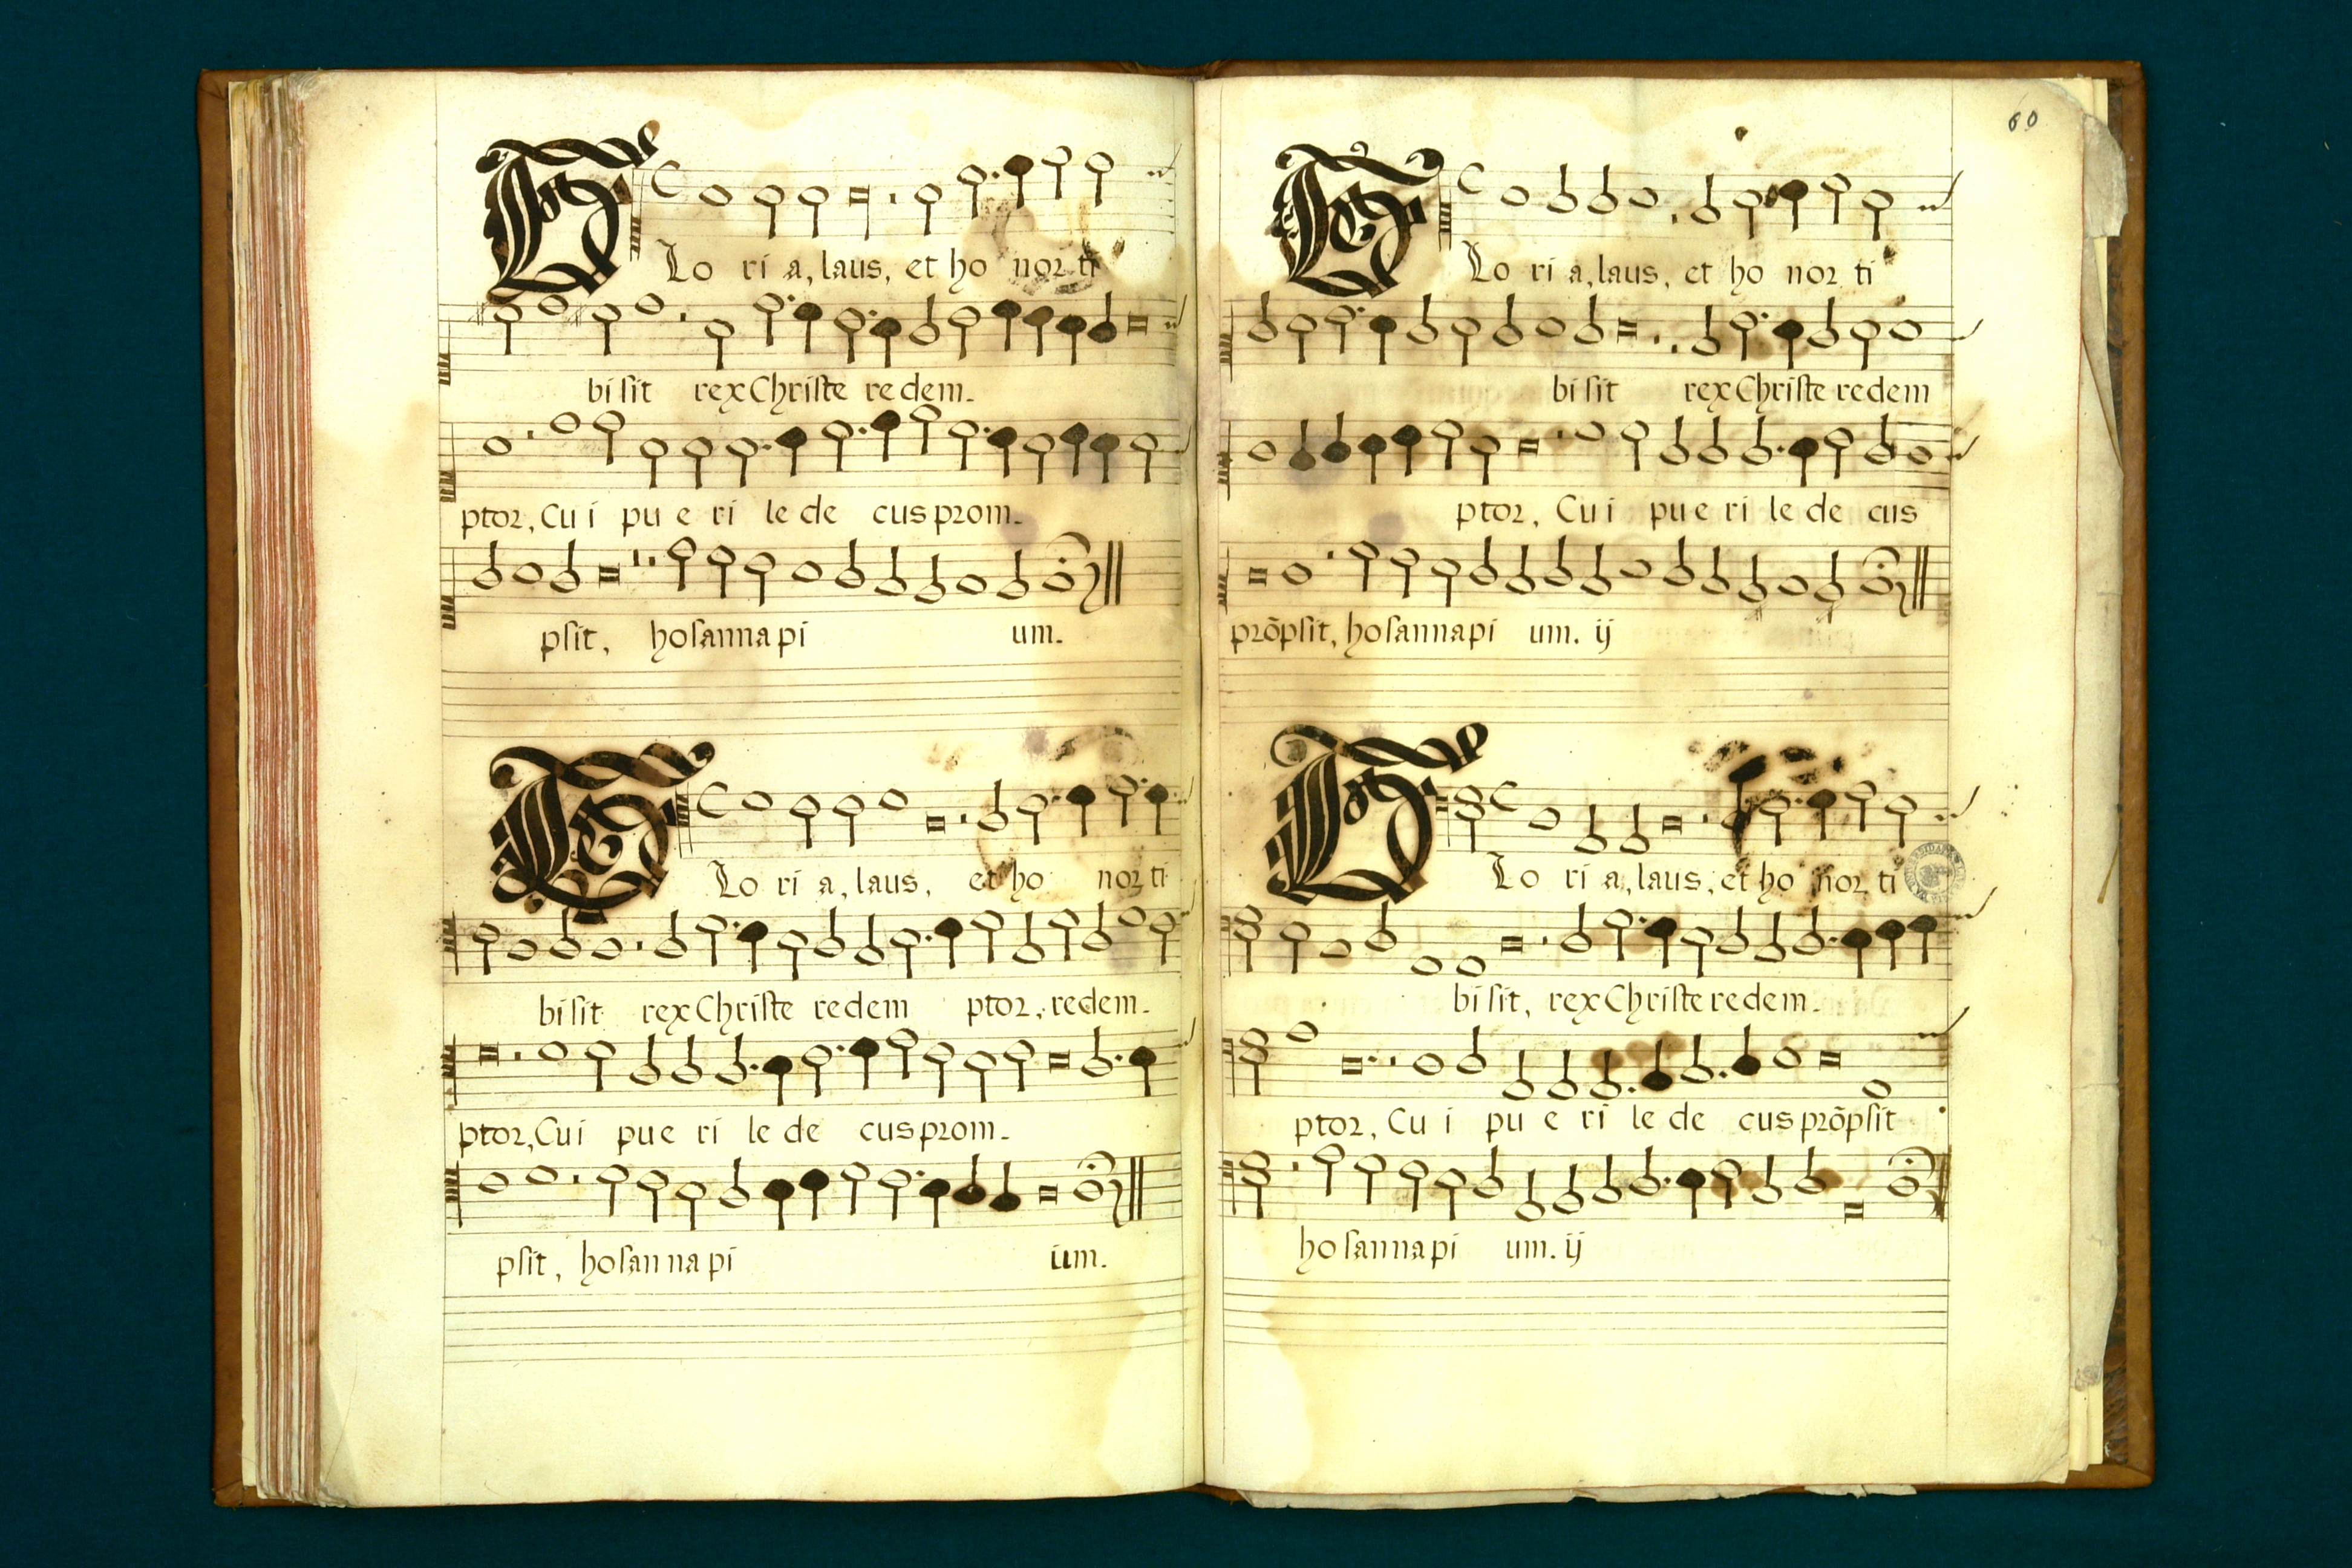 GLo ri a, laus, et ho nor ti
bi sit rex Christe redem-
ptor, Cui pu e ri le de cus prom-
psit, hosanna pi um.
GLo ri a, laus, et ho nor ti
bi sit rex Christe redem ptor, redem-
ptor, Cui pu e ri le de cus prom-
psit, hosanna pi um.
60
GLo ri a, laus, et ho nor ti
bi sit rex Christe redem
ptor, Cui pu e ri le de cus
prõpsit, hosanna pi um. ij
GLo ri a, laus, et ho nor ti
bi sit, rex Christe redem-
ptor, Cu i pu e ri le de cus prõpsit
hosanna pi um. ij